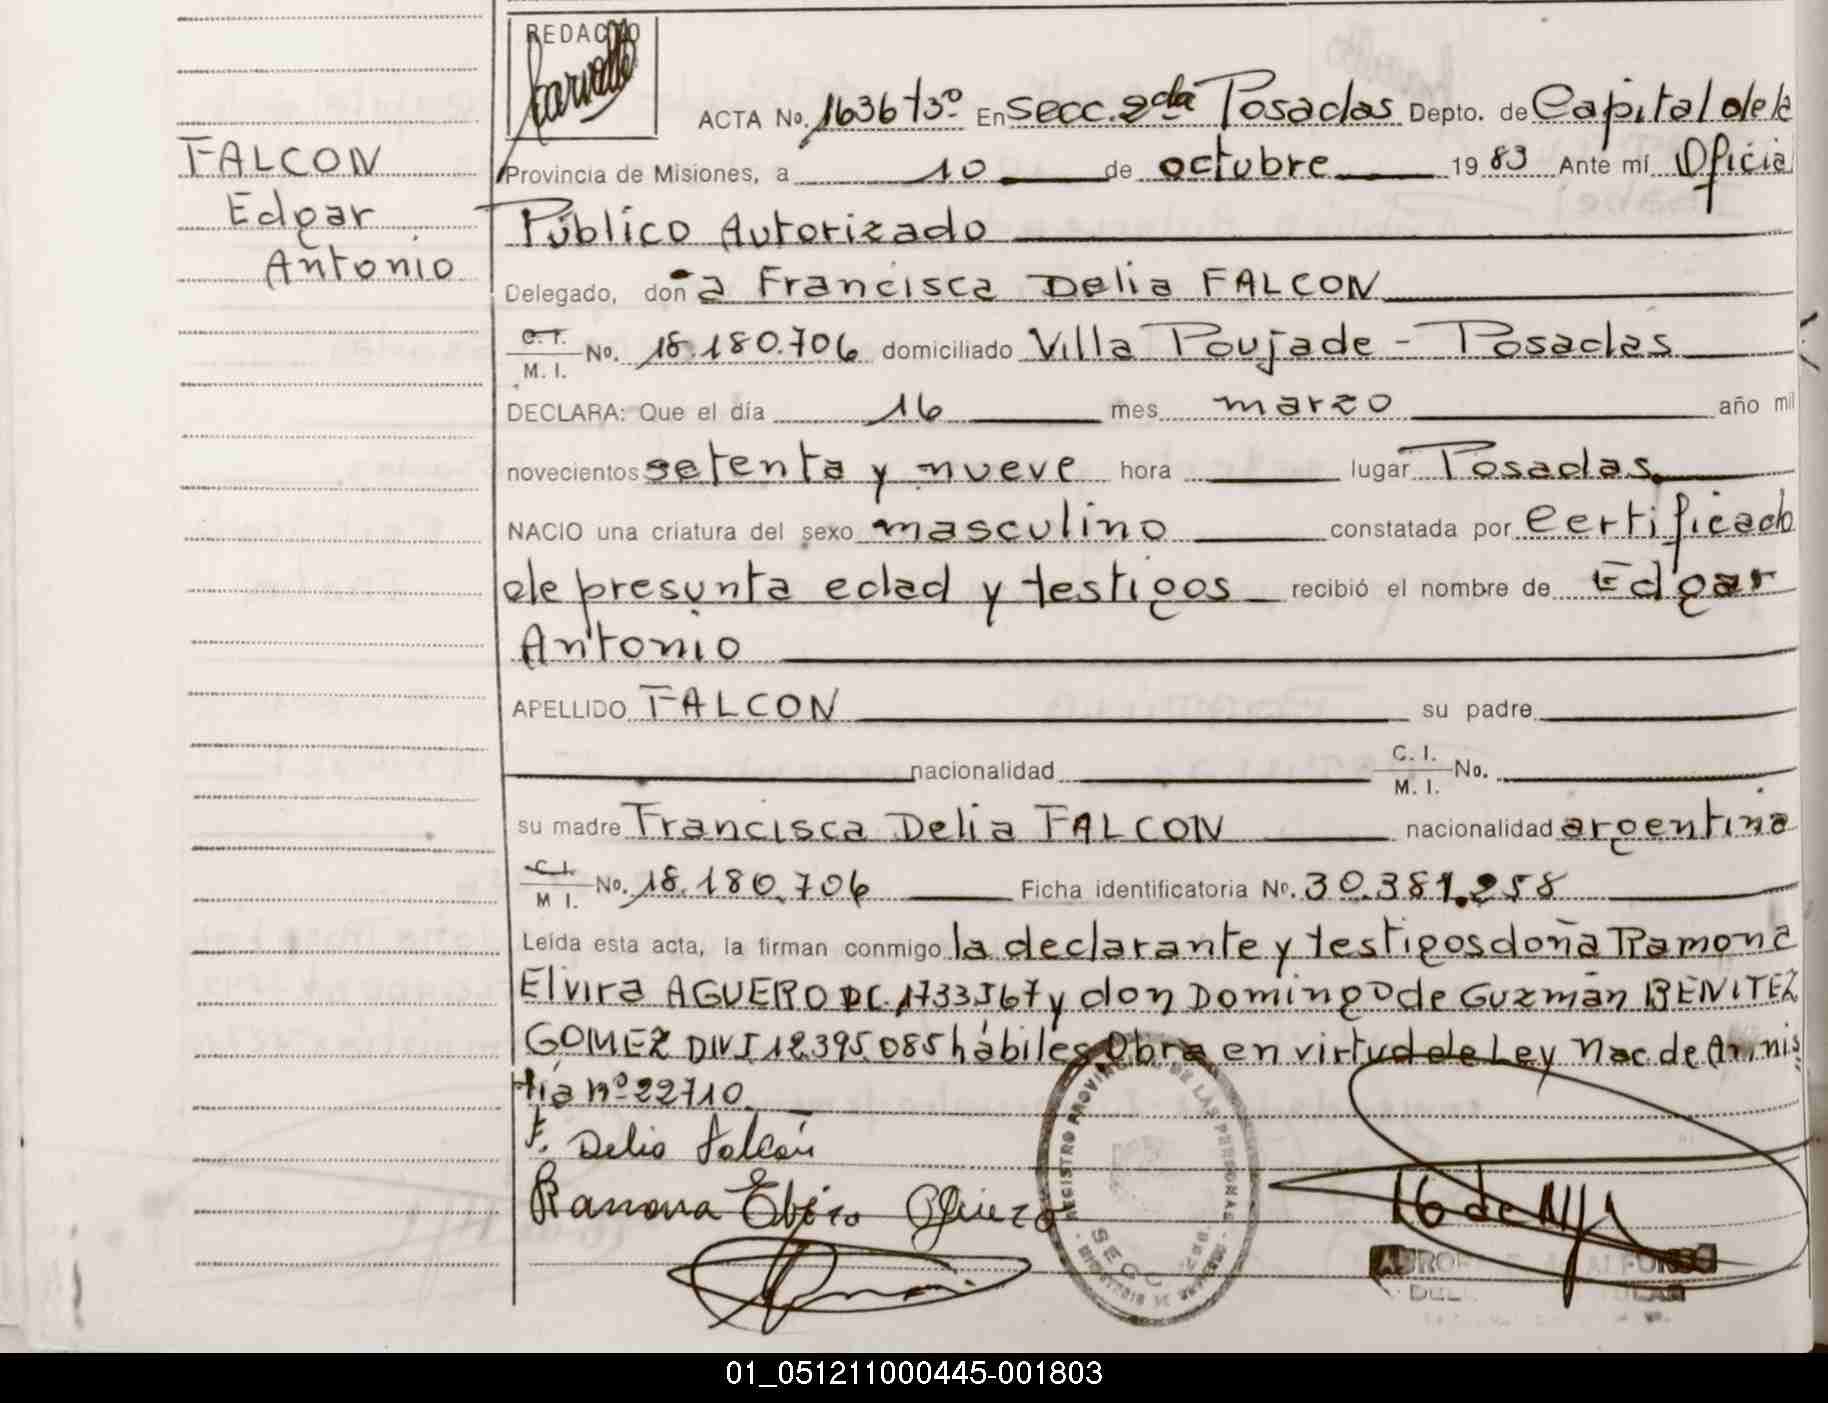 REDACTO
FALCON
Edgar
Antonio
ACTA No. 1636 tº3º En secc. 2da Posadas Depto. de Capital de la
Provincia de Misiones, a 10 de octubre 1983 Ante mí Oficial
Público Autorizado
Delegado, doña Francisca Delia FALCON
C. I. M. I. No. 18.180.706 domiciliado Villa Poujade - Posadas
DECLARA: Que el día 16 mes marzo año mil
novecientos setenta y nueve hora lugar Posadas
NACIO una criatura del sexo masculino constatada por certificado
de presunta edad y testigos recibió el nombre de Edgar
Antonio
APELLIDO FALCON su padre
nacionalidad C. I. M. I. No.
su madre Francisca Delia FALCON nacionalidad argentina
C. I. M I. No. 18.180.706 Ficha identificatoria No. 30.381.258
Leída esta acta, la firman conmigo la declarante y testigos doña Ramona
Elvira AGUERO DC. 1733567 y don Domingo de Guzmán BENITEZ
GOMEZ DNI 12.395.085 hábiles Obra en virtud de le Ley Nac. de Amnis
tía nº 22710
F. Delia Falcón
Ramona
REGISTRO PROVINCIAL DE LAS PERSONAS
01_051211000445-001803